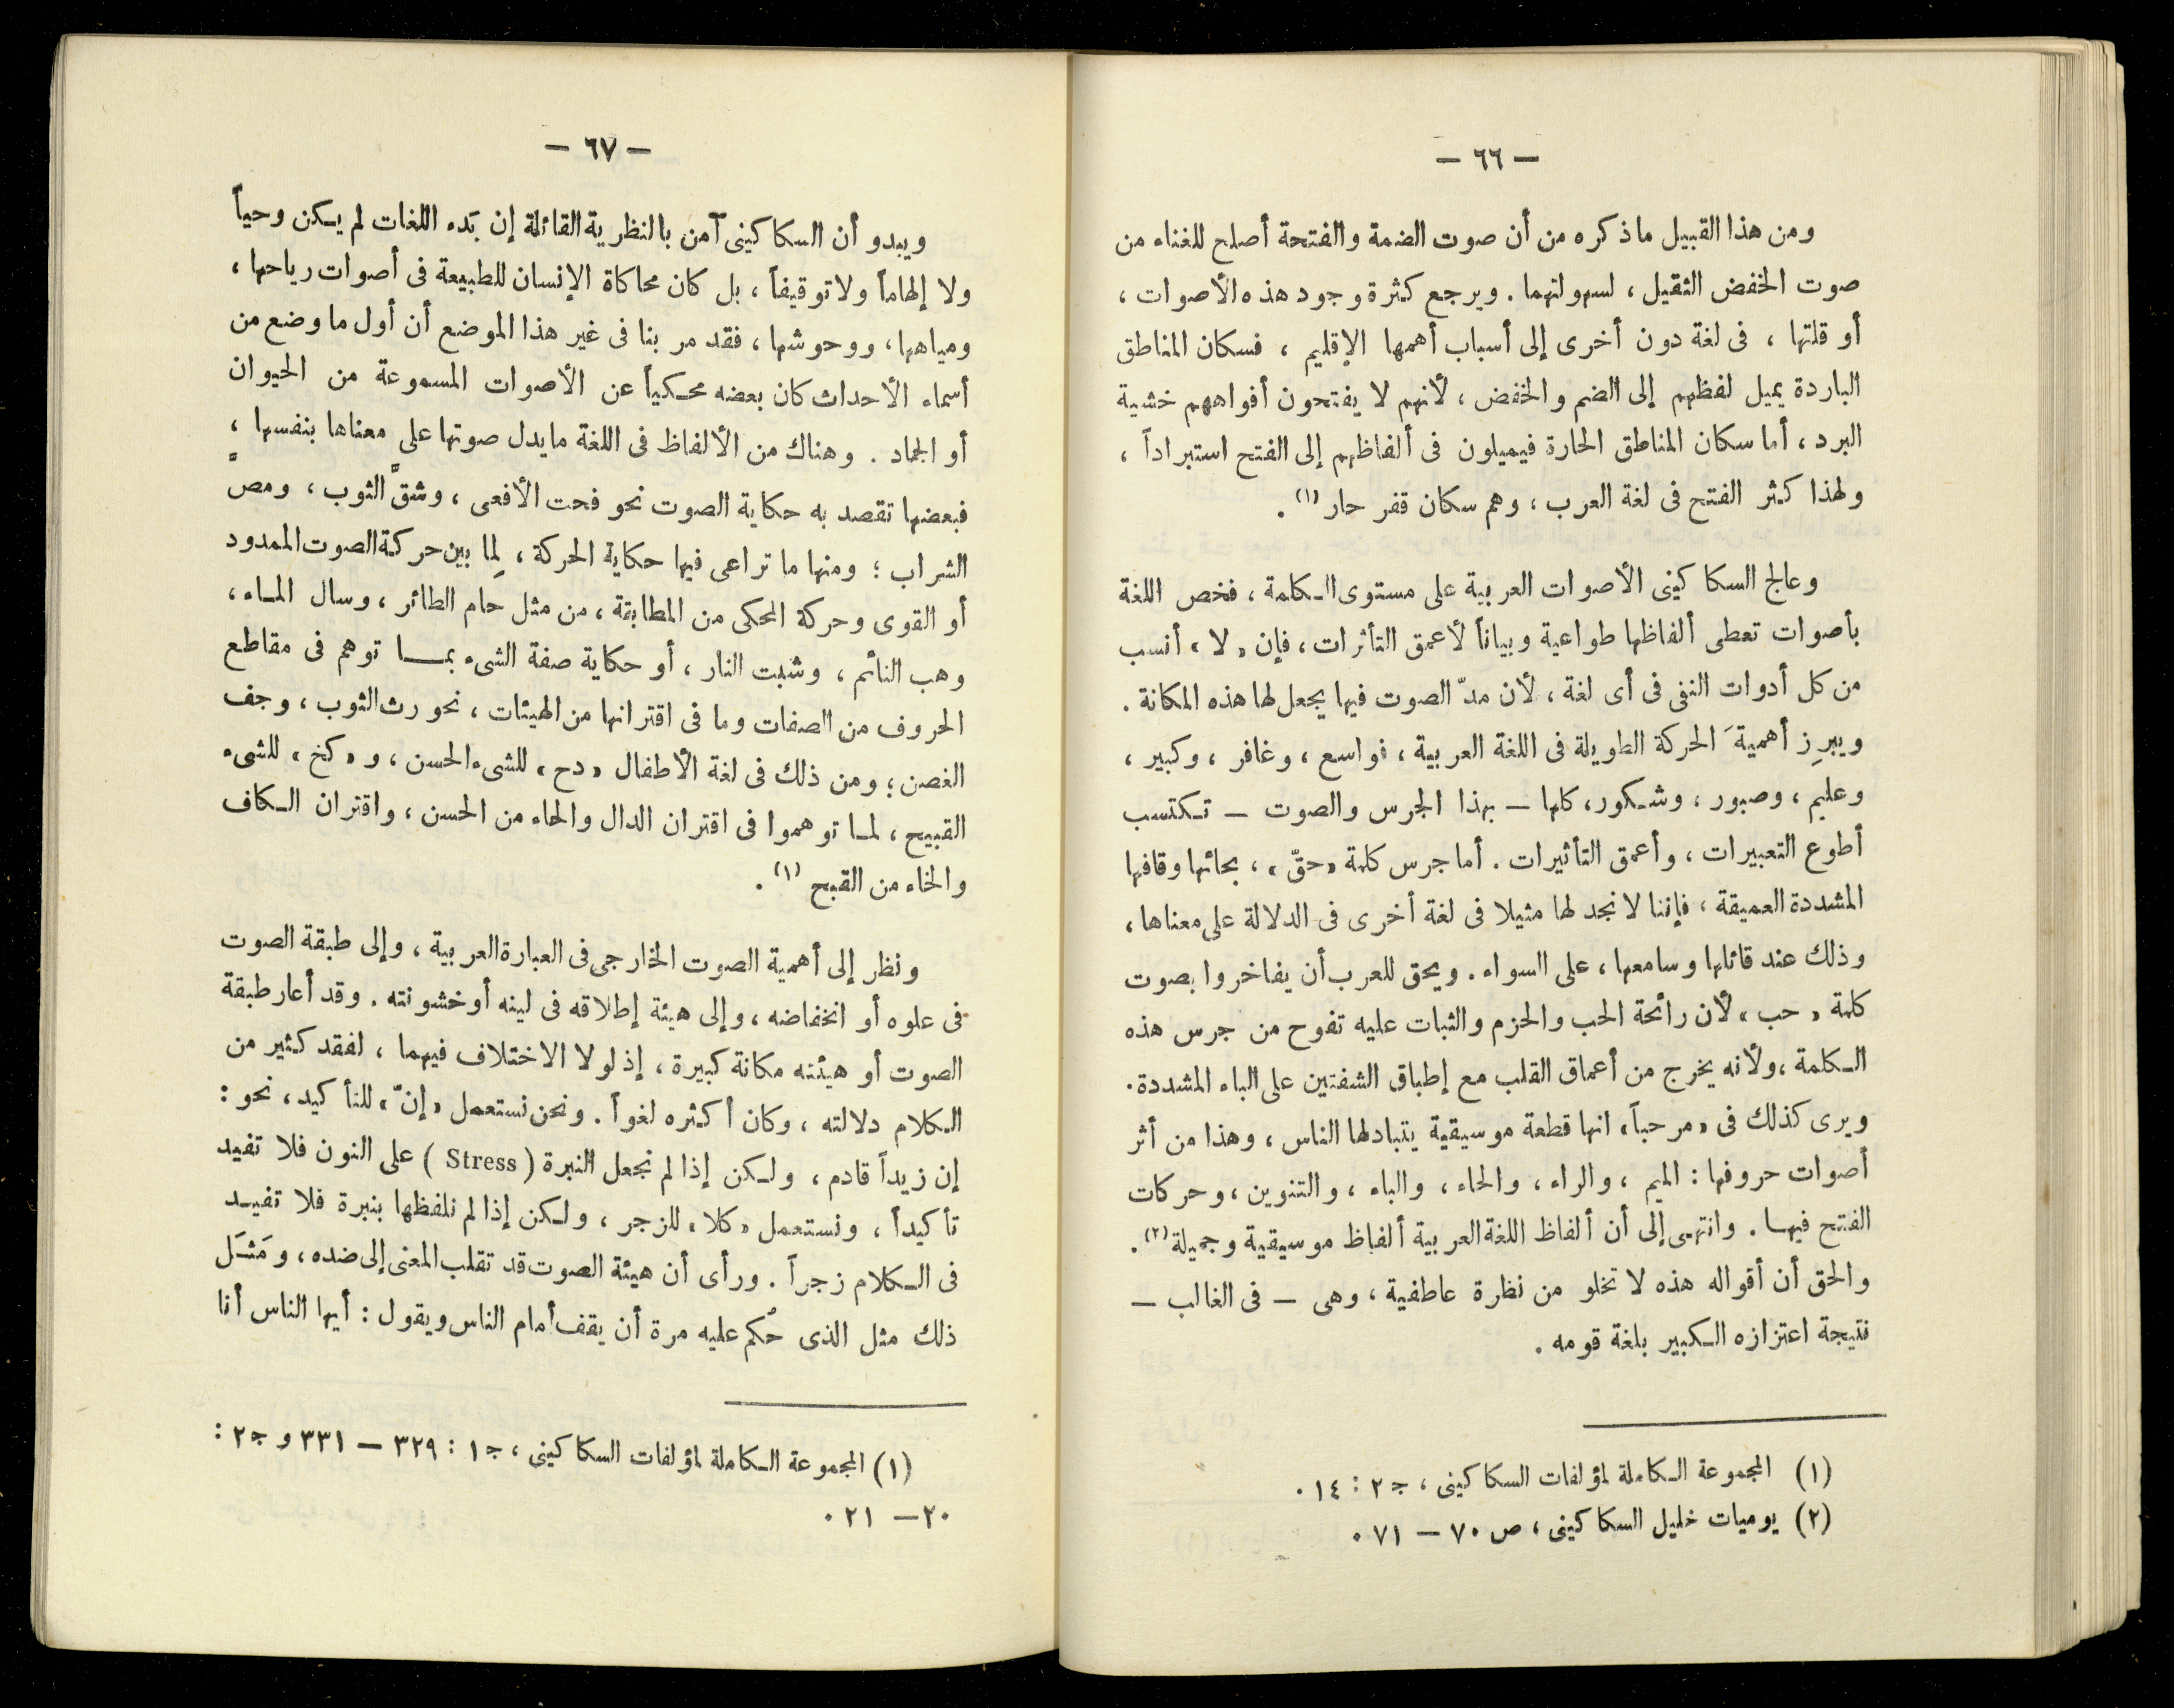 — ٦٦ —
ومن هذا القبيل ماذكره من أن صوت الضمة والفتحة أصلح للغناء من
صوت الخفض الثقيل ، لسهولتهما . ويرجع كثرة وجود هذه الأصوات ،
أو قلتها ، فى لغة دون أخرى إلى أسباب أهمها الإقليم ، فسكان المناطق
الباردة يميل لفظهم إلى الضم والخفض ، لأنهم لا يفتحون أفواههم خشية
البرد ، أما سكان المناطق الحارة فيميلون فى ألفاظهم إلى الفتح استبراداً ،
ولهذا كثر الفتح فى لغة العرب ، وهم سكان قفر حار (١) .
وعالج السكاكينى الأصوات العربية على مستوى الكلمة ، فخص اللغة
بأصوات تعطى ألفاظها طواعية وبياناً لأعمق التأثرات ، فإن « لا » أنسب
من كل أدوات النفى فى أى لغة ، لأن مدّ الصوت فيها يجعل لها هذه المكانة .
ويبرِز أهميةَ الحركة الطويلة فى اللغة العربية ، فواسع ، وغافر ، وكبير ،
وعليم ، وصبور ، وشكور ، كلها — بهذا الجرس والصوت — تكتسب
أطوع التعبيرات ، وأعمق التأثيرات . أما جرس كلمة « حقّ » ، بحائها وقافها
المشددة العميقة ، فإننا لا نجد لها مثيلا فى لغة أخرى فى الدلالة على معناها ،
وذلك عند قائلها وسامعها ، على السواء . ويحق للعرب أن يفاخروا بصوت
كلمة « حب » لأن رائحة الحب والحزم والثبات عليه تفوح من جرس هذه
الكلمة ، ولأنه يخرج من أعماق القلب مع إطباق الشفتين على الباء المشددة .
ويرى كذلك فى « مرحباً » انها قطعة موسيقية يتبادلها الناس ، وهذا من أثر
أصوات حروفها : الميم ، والراء ، والحاء ، والباء ، والتنوين ، وحركات
الفتح فيها . وانتهى إلى أن ألفاظ اللغة العربية ألفاظ موسيقية وجميلة (٢) .
والحق أن أقواله هذه لا تخلو من نظرة عاطفية ، وهى — فى الغالب —
نتيجة اعتزازه الكبير بلغة قومه .
(١) المجموعة الكاملة لمؤلفات السكاكينى ، ج ٢ : ١٤ .
(٢) يوميات خليل السكاكينى ، ص ٧٠ — ٧١ .
— ٦٧ —
ويبدو أن السكاكينى آمن بالنظرية القائلة إن بَدء اللغات لم يكن وحياً
ولا إلهاماً ولا توقيفاً ، بل كان محاكاة الإنسان للطبيعة فى أصوات رياحها ،
ومياهها ، ووحوشها ، فقد مر بنا فى غير هذا الموضع أن أول ما وضع من
أسماء الأحداث كان بعضه محكياً عن الأصوات المسموعة من الحيوان
أو الجماد . وهناك من الألفاظ فى اللغة مايدل صوتها على معناها بنفسها ،
فبعضها تقصد به حكاية الصوت نحو فحت الأفعى ، وشقَّ الثوب ، ومصَّ
الشراب ؛ ومنها ما تراعى فيها حكاية الحركة ، لِما بين حركة الصوت الممدود
أو القوى وحركة المحكى من المطابقة ، من مثل حام الطائر ، وسال الماء ،
وهب النائم ، وشبت النار ، أو حكاية صفة الشىء بما توهم فى مقاطع
الحروف من الصفات وما فى اقترانها من الهيئات ، نحو رث الثوب ، وجف
الغصن ؛ ومن ذلك فى لغة الأطفال « دح » للشىء الحسن ، و « كخ » للشىء
القبيح ، لما توهموا فى اقتران الدال والحاء من الحسن ، واقتران الكاف
والخاء من القبح (١) .
ونظر إلى أهمية الصوت الخارجى فى العبارة العربية ، وإلى طبقة الصوت
فى علوه أو انخفاضه ، وإلى هيئة إطلاقه فى لينه أو خشونته . وقد أعار طبقة
الصوت أو هيئته مكانة كبيرة ، إذ لولا الاختلاف فيهما ، لفقد كثير من
الكلام دلالته ، وكان أكثره لغواً . ونحن نستعمل « إنّ » للتأكيد ، نحو :
إن زيداً قادم ، ولكن إذا لم نجعل النبرة ( Stress ) على النون فلا تفيد
تأكيداً ، ونستعمل « كلا » للزجر ، ولكن إذا لم نلفظها بنبرة فلا تفيد
فى الكلام زجراً . ورأى أن هيئة الصوت قد تقلب المعنى إلى ضده ، ومَثَل
ذلك مثل الذى حُكم عليه مرة أن يقف أمام الناس ويقول : أيها الناس أنا
(١) المجموعة الكاملة لمؤلفات السكاكينى ، ج ١ : ٣٢٩ — ٣٣١ و ج ٢ :
٢٠ — ٢١ .